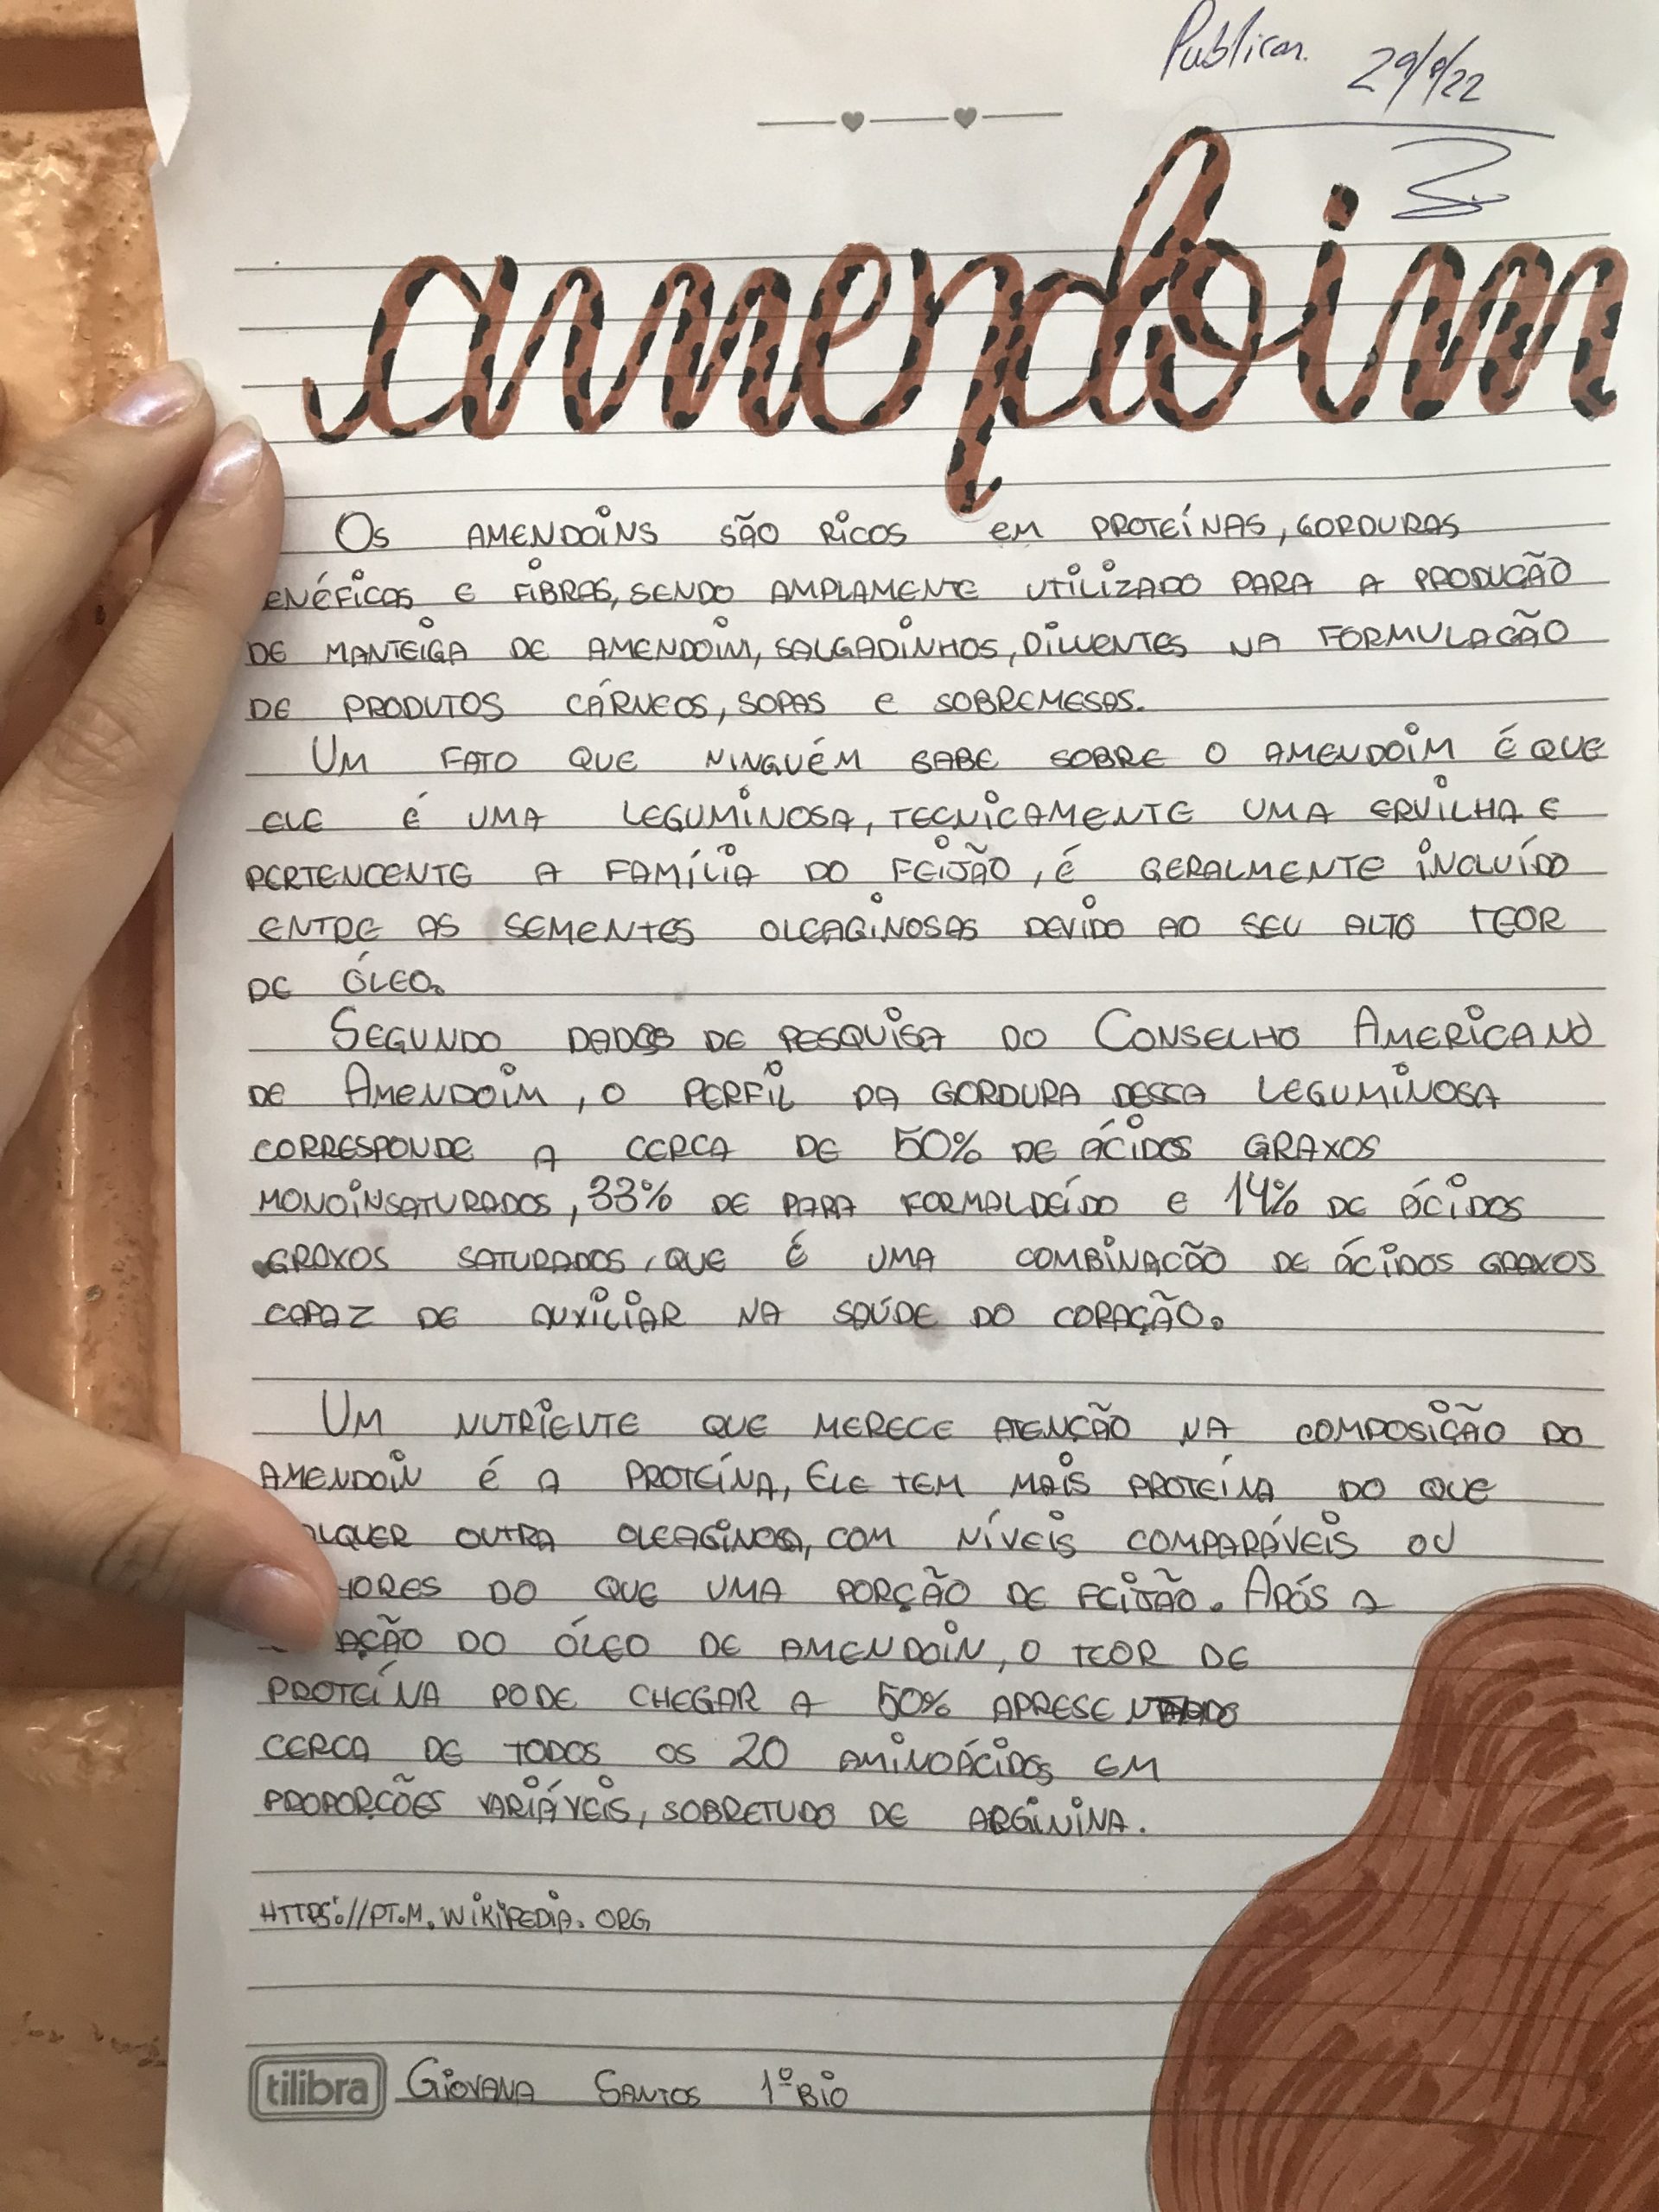 Publicar. 29/9/22
amendoim
OS AMENDOINS SÃO RICOS EM PROTEÍNAS, GORDURAS
ENÉFICAS E FIBRAS, SENDO AMPLAMENTE UTILIZADO PARA A PRODUÇÃO
DE MANTEIGA DE AMENDOIM, SALGADINHOS, DILUENTES NA FORMULAÇÃO
DE PRODUTOS CÁRNEOS, SOPAS E SOBREMESAS.
UM FATO QUE NINGUÉM SABE SOBRE O AMENDOIM É QUE
ELE É UMA LEGUMINOSA, TECNICAMENTE UMA ERVILHA E
PERTENCENTE A FAMÍLIA DO FEIJÃO, É GERALMENTE INCLUÍDO
ENTRE AS SEMENTES OLEAGINOSAS DEVIDO AO SEU ALTO TEOR
DE ÓLEO.
SEGUNDO DADOS DE PESQUISA DO CONSELHO AMERICANO
DE AMENDOIM, O PERFIL DA GORDURA DESSA LEGUMINOSA
CORRESPONDE A CERCA DE 50% DE ÁCIDOS GRAXOS
MONOINSATURADOS, 33% DE PARA FORMALDEÍDO E 14% DE ÁCIDOS
GRAXOS SATURADOS, QUE É UMA COMBINAÇÃO DE ÁCIDOS GRAXOS
CAPAZ DE AUXILIAR NA SAÚDE DO CORAÇÃO.
UM NUTRIENTE QUE MERECE ATENÇÃO NA COMPOSIÇÃO DO
AMENDOIN É A PROTEÍNA, ELE TEM MAIS PROTEÍNA DO QUE
ALQUER OUTRA OLEAGINOSA, COM NÍVEIS COMPARÁVEIS OU
HORES DO QUE UMA PORÇÃO DE FEIJÃO. APÓS A
AÇÃO DO ÓLEO DE AMENDOIN, O TEOR DE
PROTEÍNA PODE CHEGAR A 50% APRESENTANDO
CERCA DE TODOS OS 20 AMINOÁCIDOS EM
PROPORÇÕES VARIÁVEIS, SOBRETUDO DE ARGININA.
HTTPS://PT.M.WIKIPEDIA.ORG
tilibra GIOVANA SANTOS 1º BIO